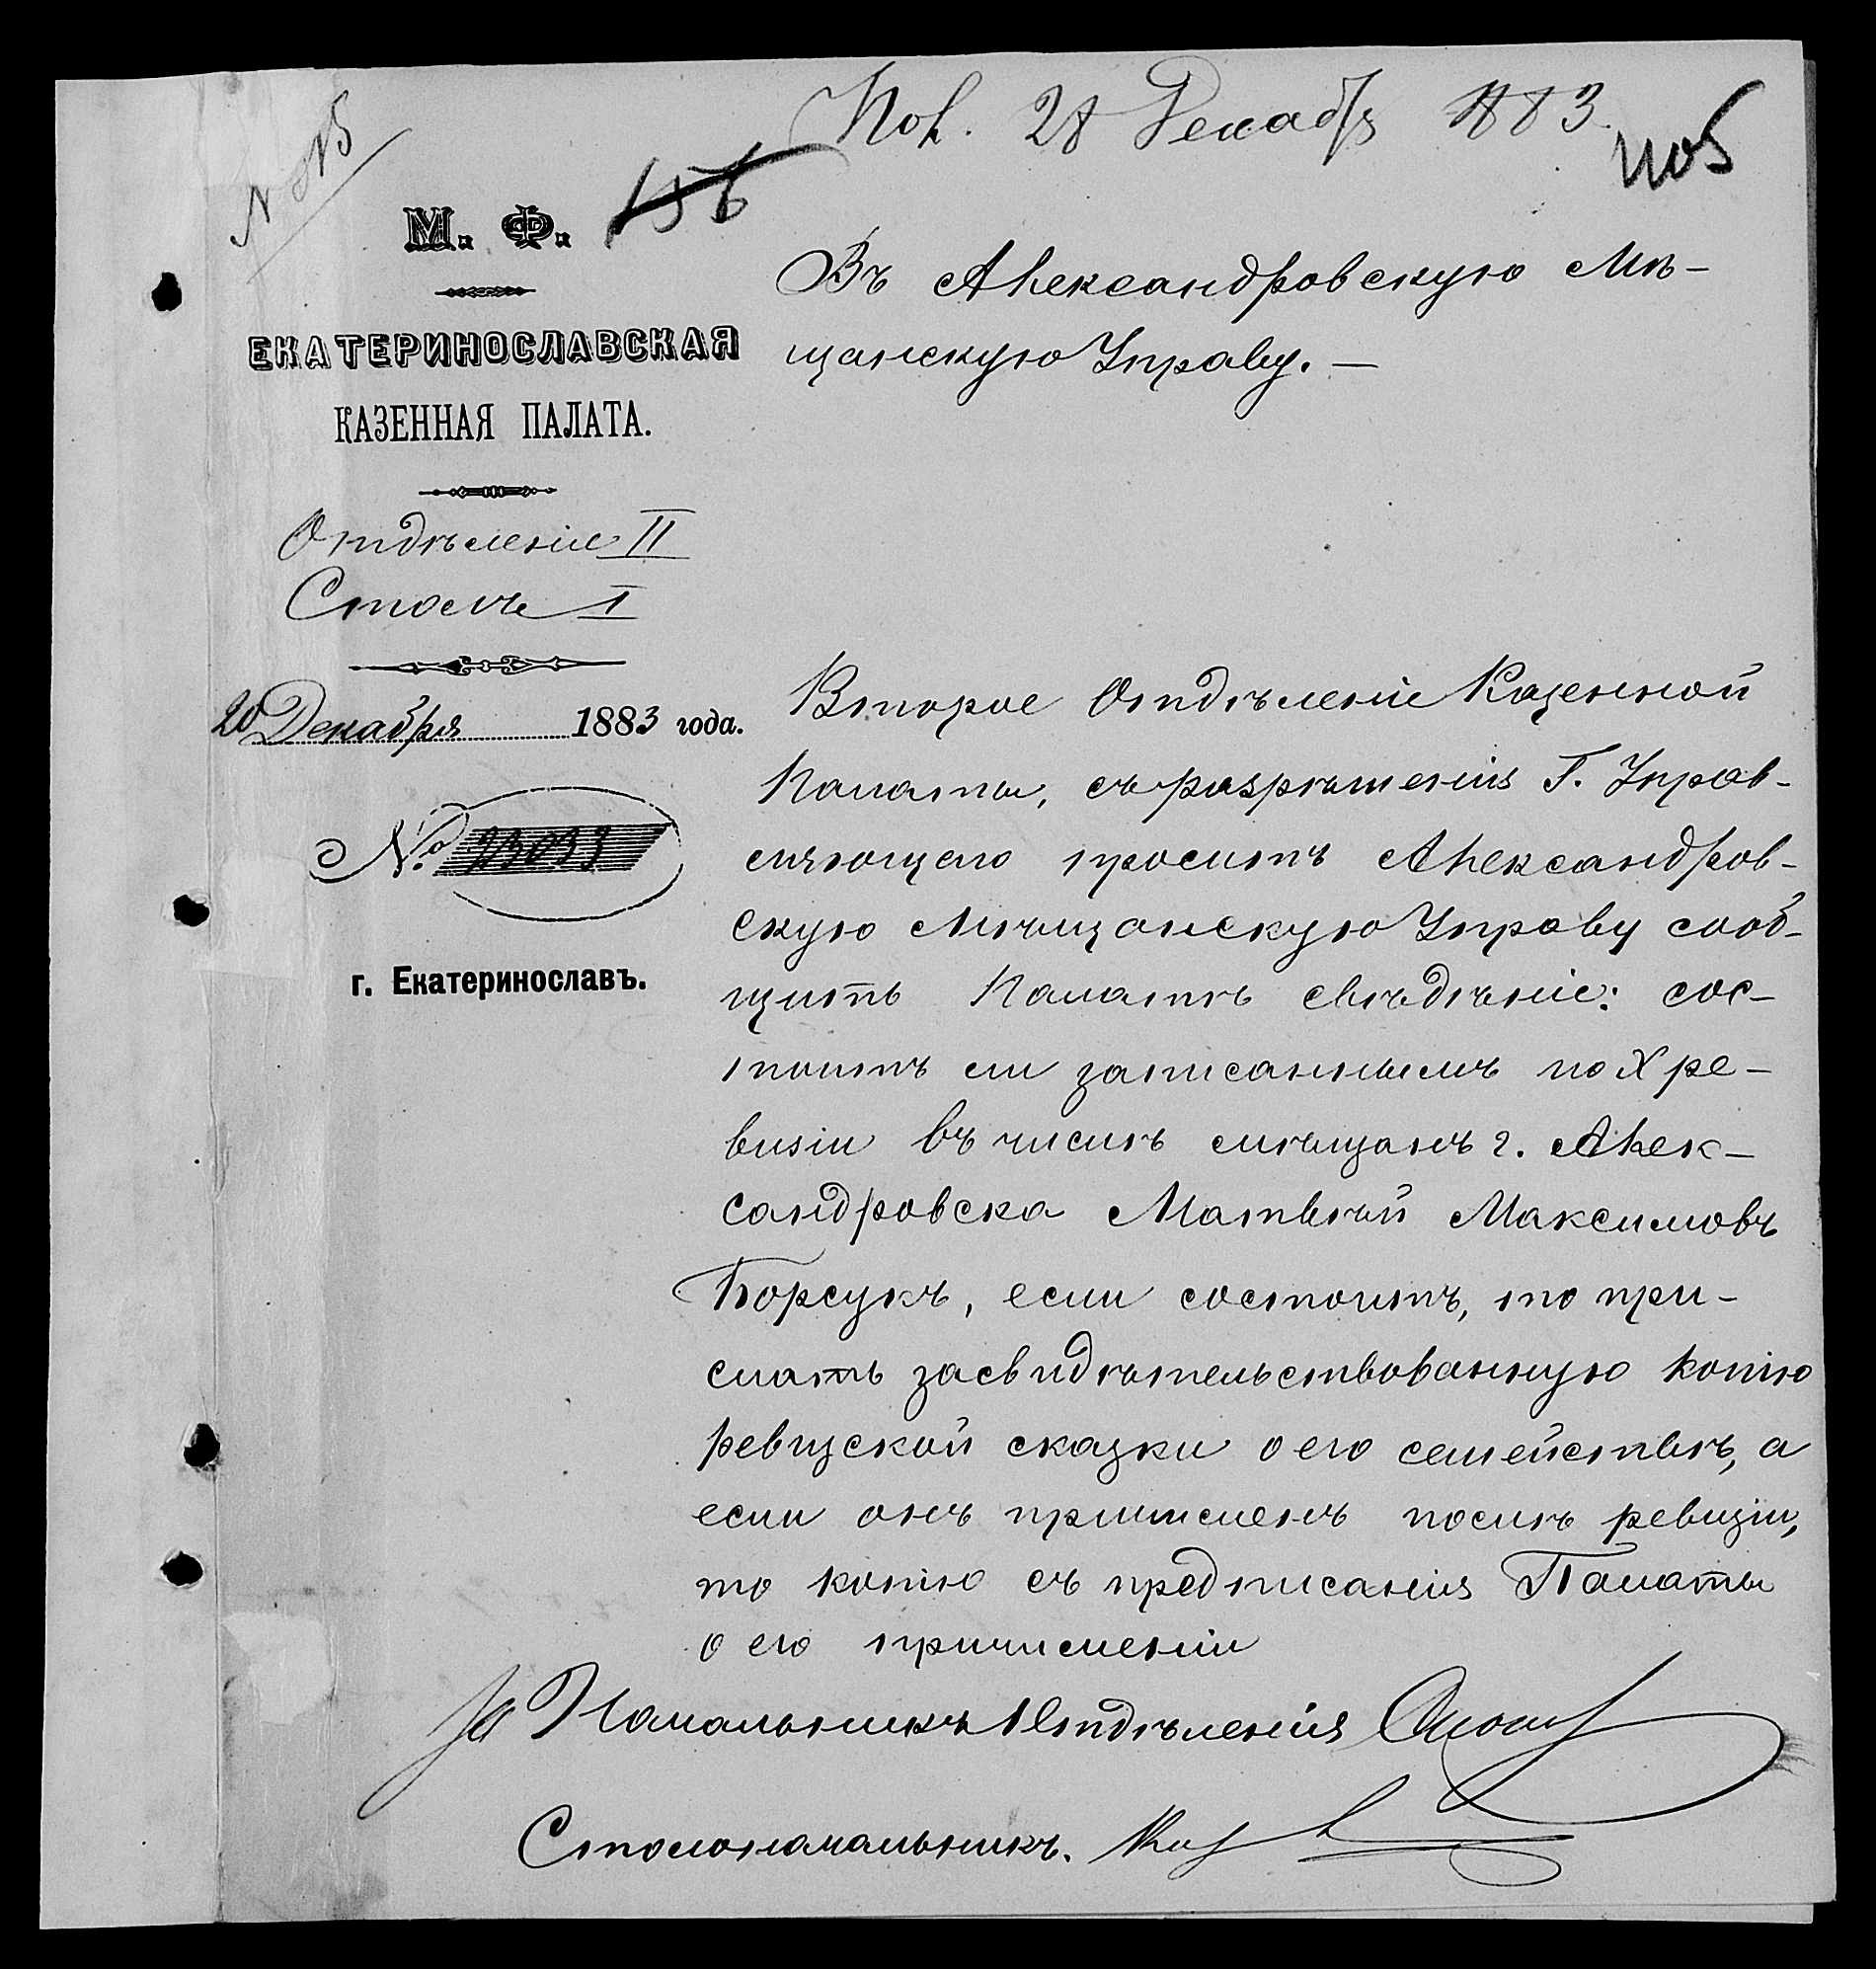 Пол. 28 Декабр 1883
156
М. Ф.
ЕКАТЕРИНОСЛАВСКАЯ
КАЗЕННАЯ ПАЛАТА.
Отдѣленіе II
Столъ I
20 Декабря 1883 года.
№ 23033
г. Екатеринославъ.
Въ Александровскую Мѣ-
щанскую Управу. —
Второе Отдѣленіе Казенной
Палаты, съ разрѣшенія Г. Управ-
ляющаго проситъ Александров-
скую Мѣщанскую Управу сооб-
щить Палатѣ свѣдѣніе: сос-
тоитъ ли записаннымъ по X ре-
визіи въ числѣ мѣщанъ г. Алек-
сандровска Матвѣй Максимовъ
Борсукъ, если состоитъ, то при-
слать засвидѣтельствованную копію
ревизской сказки о его семействѣ, а
если онъ причисленъ послѣ ревизіи,
то копію съ предписанія Палаты
о его причисленіи
За Начальникъ Отдѣленія
Столоначальникъ.